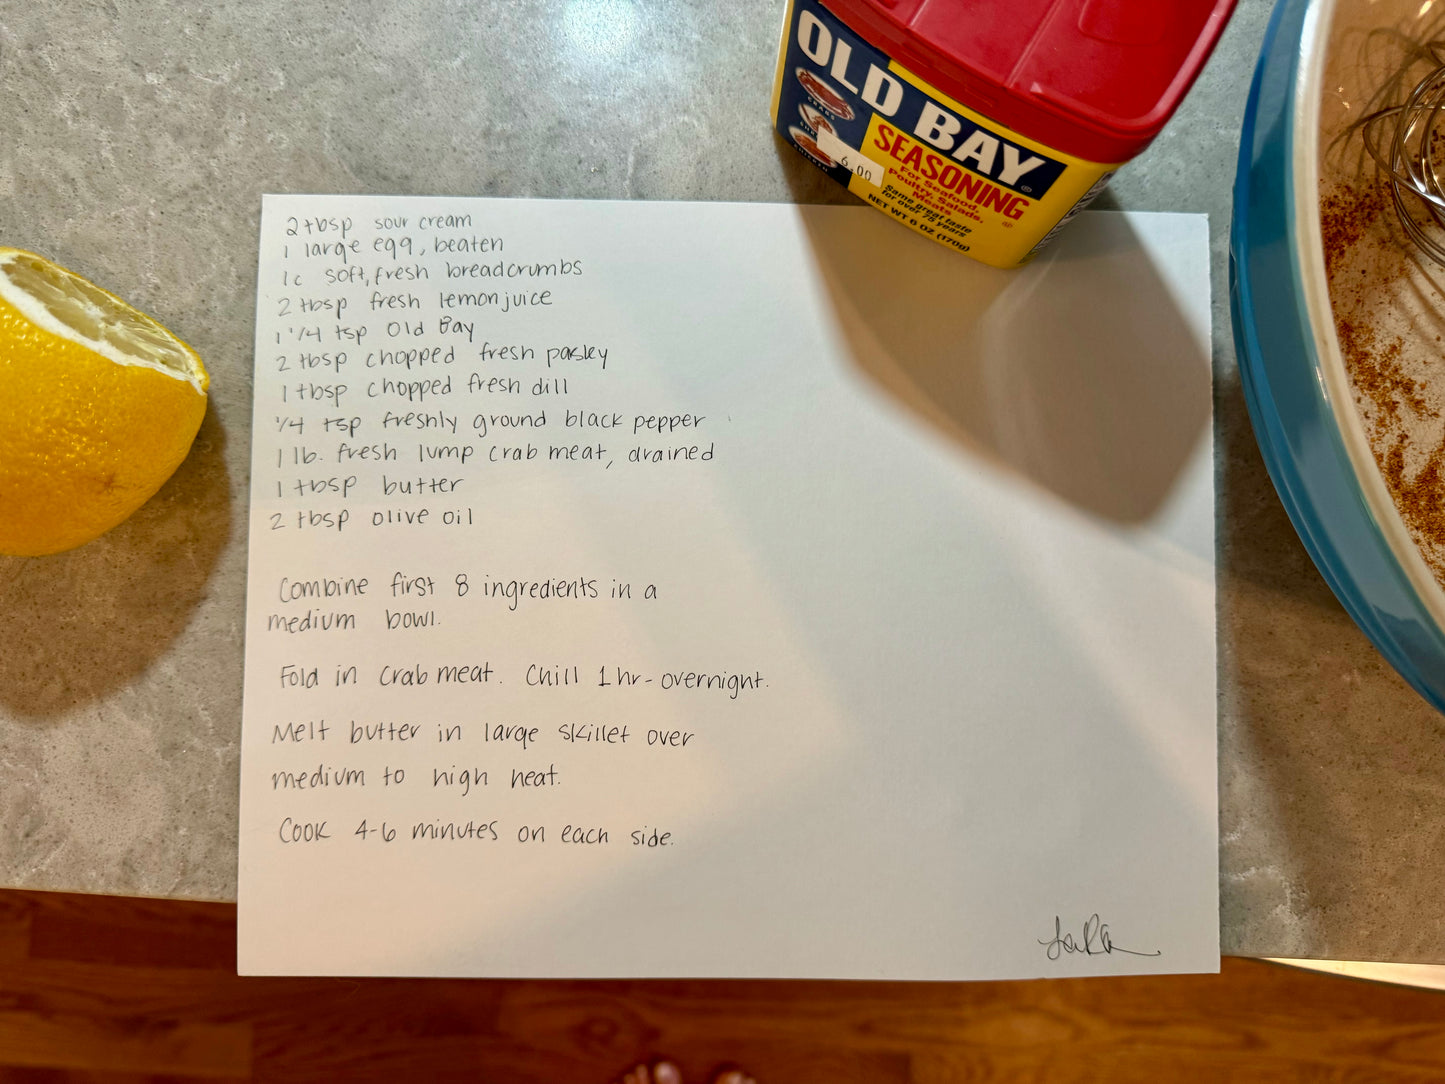 OLD BAY®
SEASONING
For Seafood,
Poultry, Salads,
Meats ®
Same great taste
for over 75 years
NET WT 6 OZ (170g)
CRABS
6.00
2 tbsp sour cream
1 large egg, beaten
1c soft, fresh breadcrumbs
2 tbsp fresh lemon juice
1 1/4 tsp Old Bay
2 tbsp chopped fresh pasley
1 tbsp chopped fresh dill
1/4 tsp freshly ground black pepper
1 lb. fresh lump crab meat, drained
1 tbsp butter
2 tbsp olive oil
Combine first 8 ingredients in a
medium bowl.
Fold in crab meat. Chill 1 hr - overnight.
Melt butter in large skillet over
medium to high heat.
Cook 4-6 minutes on each side.